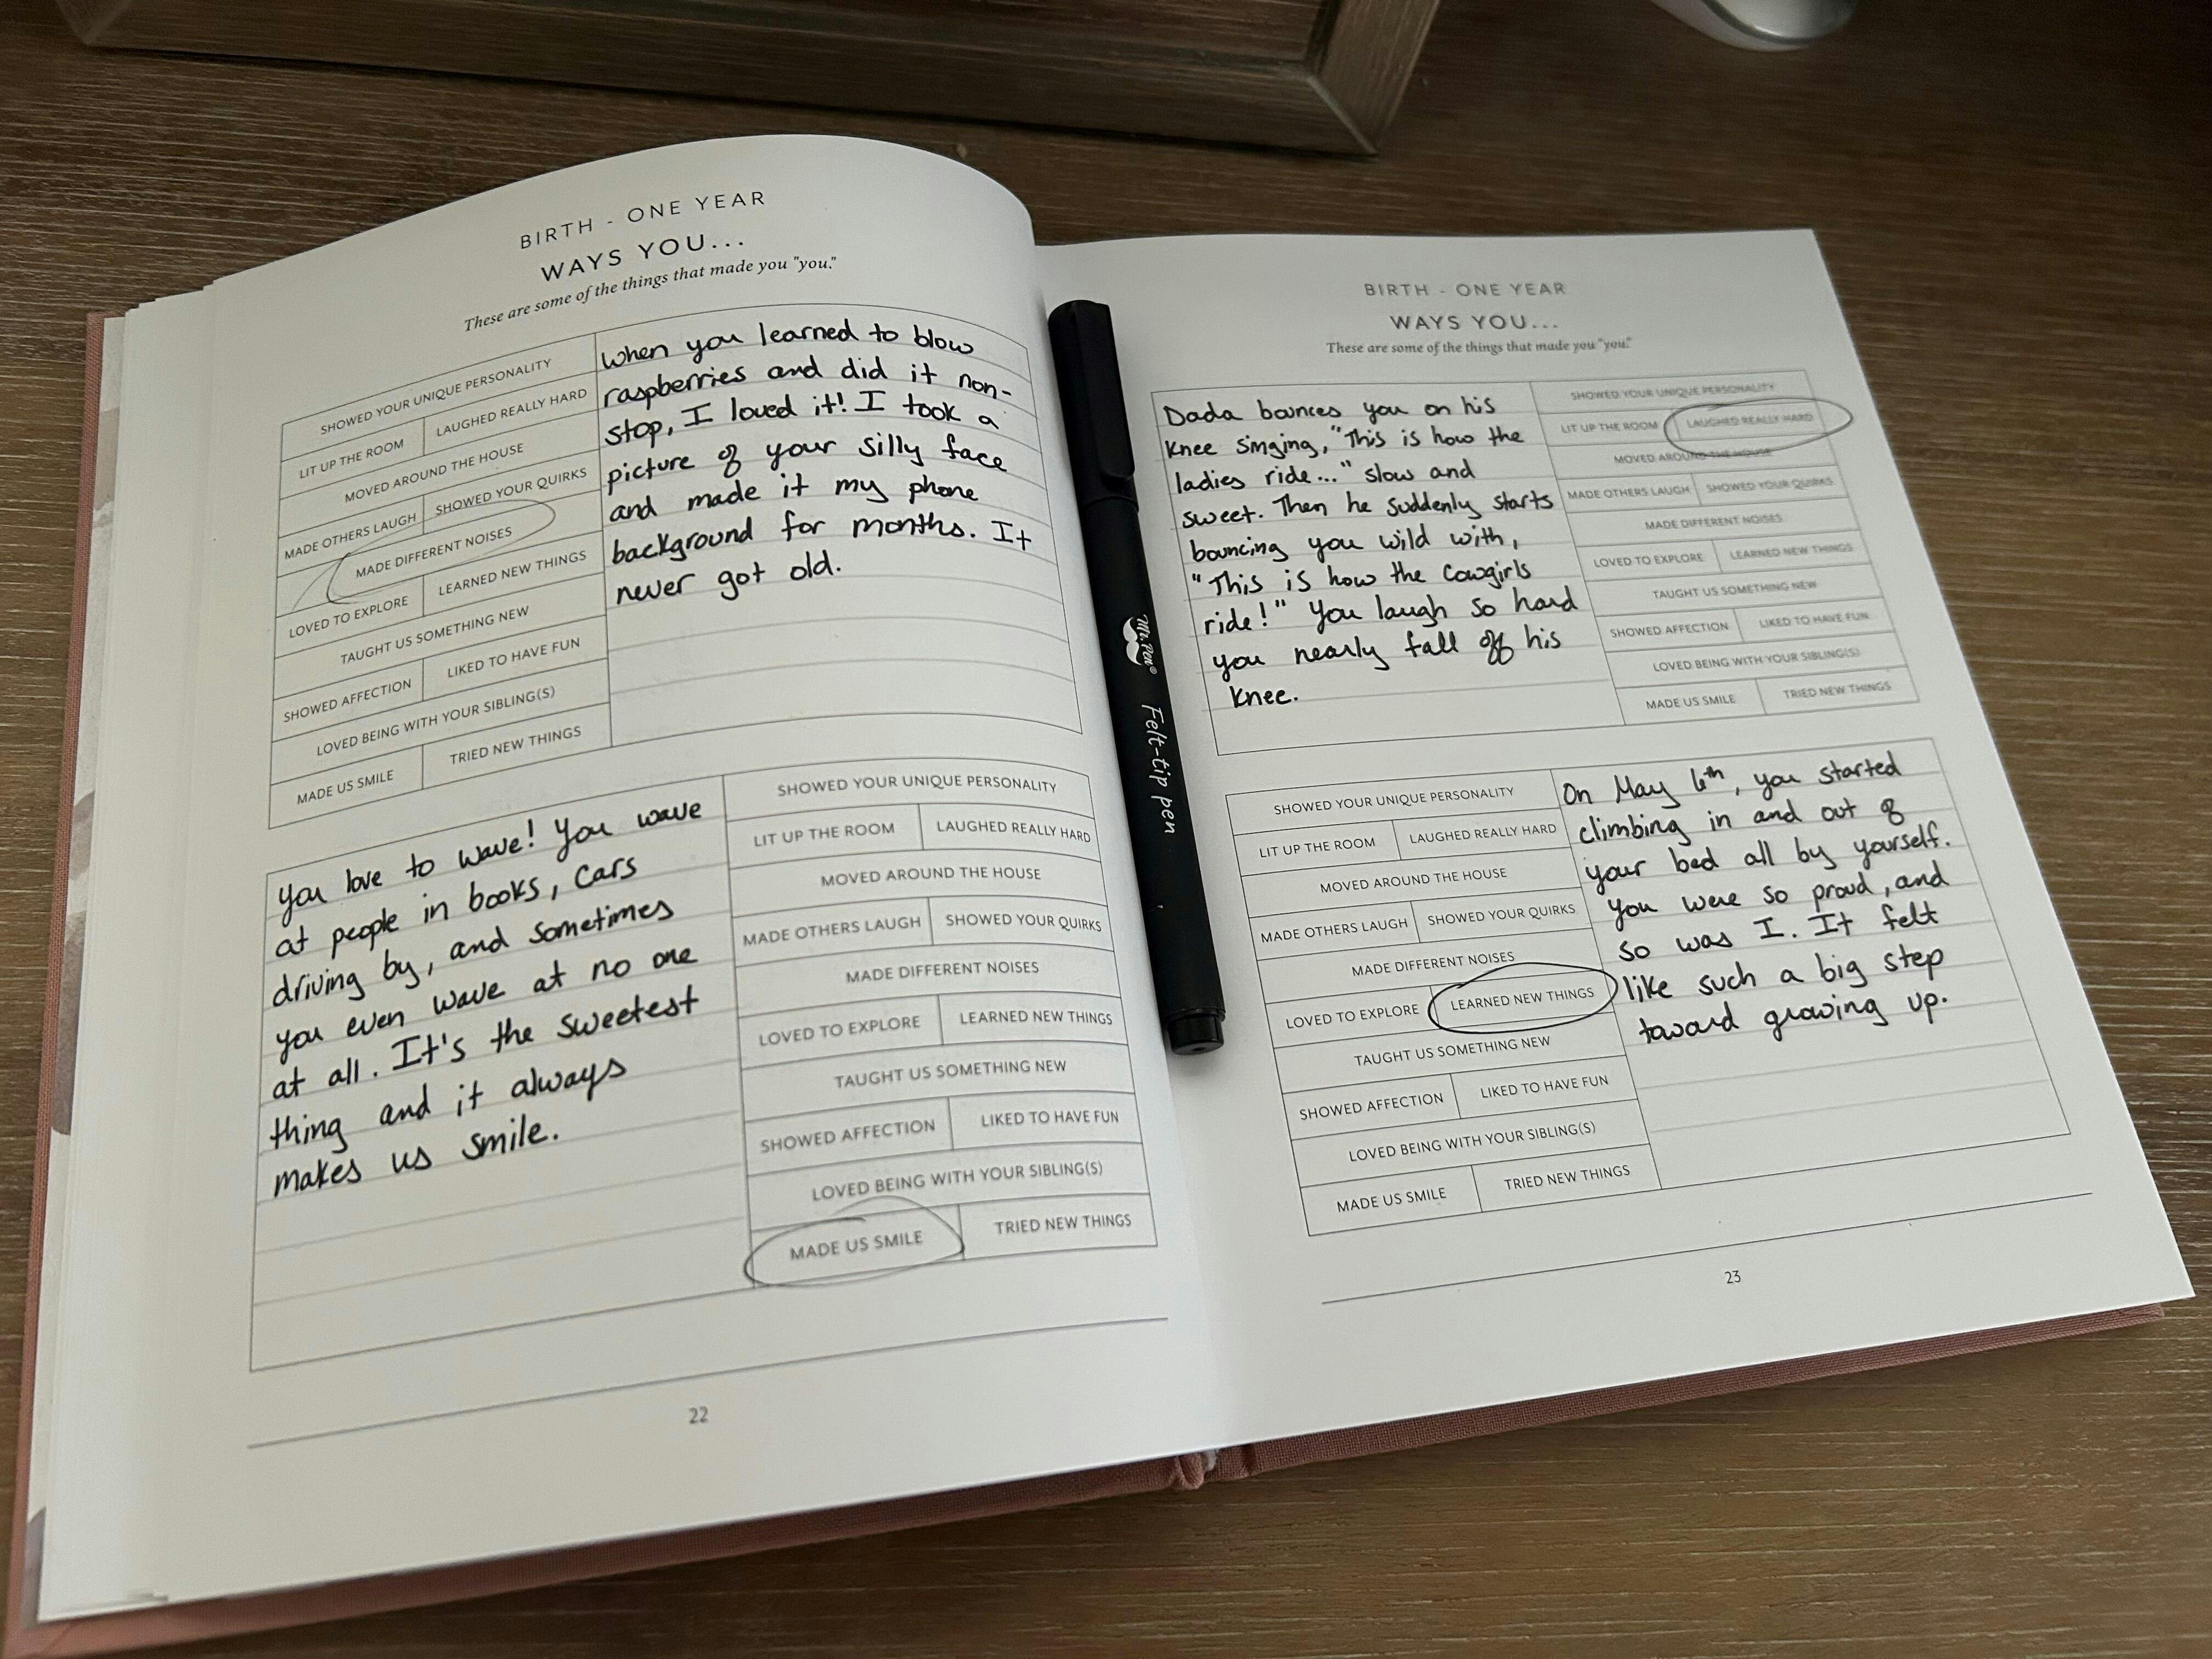 BIRTH - ONE YEAR
WAYS YOU...
These are some of the things that made you "you."
SHOWED YOUR UNIQUE PERSONALITY
LIT UP THE ROOM
LAUGHED REALLY HARD
MOVED AROUND THE HOUSE
MADE OTHERS LAUGH
SHOWED YOUR QUIRKS
MADE DIFFERENT NOISES
LOVED TO EXPLORE
LEARNED NEW THINGS
TAUGHT US SOMETHING NEW
SHOWED AFFECTION
LIKED TO HAVE FUN
LOVED BEING WITH YOUR SIBLING(S)
MADE US SMILE
TRIED NEW THINGS
When you learned to blow
raspberries and did it non-
stop, I loved it! I took a
picture of your silly face
and made it my phone
background for months. It
never got old.
You love to wave! You wave
at people in books, cars
driving by, and sometimes
you even wave at no one
at all. It's the sweetest
thing and it always
makes us smile.
SHOWED YOUR UNIQUE PERSONALITY
LIT UP THE ROOM
LAUGHED REALLY HARD
MOVED AROUND THE HOUSE
MADE OTHERS LAUGH
SHOWED YOUR QUIRKS
MADE DIFFERENT NOISES
LOVED TO EXPLORE
LEARNED NEW THINGS
TAUGHT US SOMETHING NEW
SHOWED AFFECTION
LIKED TO HAVE FUN
LOVED BEING WITH YOUR SIBLING(S)
MADE US SMILE
TRIED NEW THINGS
22
Mr. Pen® Felt-tip pen
BIRTH - ONE YEAR
WAYS YOU...
These are some of the things that made you "you."
Dada bounces you on his
knee singing, "This is how the
ladies ride..." slow and
sweet. Then he suddenly starts
bouncing you wild with,
"This is how the cowgirls
ride!" You laugh so hard
you nearly fall off his
knee.
SHOWED YOUR UNIQUE PERSONALITY
LIT UP THE ROOM
LAUGHED REALLY HARD
MOVED AROUND THE HOUSE
MADE OTHERS LAUGH
SHOWED YOUR QUIRKS
MADE DIFFERENT NOISES
LOVED TO EXPLORE
LEARNED NEW THINGS
TAUGHT US SOMETHING NEW
SHOWED AFFECTION
LIKED TO HAVE FUN
LOVED BEING WITH YOUR SIBLING(S)
MADE US SMILE
TRIED NEW THINGS
SHOWED YOUR UNIQUE PERSONALITY
LIT UP THE ROOM
LAUGHED REALLY HARD
MOVED AROUND THE HOUSE
MADE OTHERS LAUGH
SHOWED YOUR QUIRKS
MADE DIFFERENT NOISES
LOVED TO EXPLORE
LEARNED NEW THINGS
TAUGHT US SOMETHING NEW
SHOWED AFFECTION
LIKED TO HAVE FUN
LOVED BEING WITH YOUR SIBLING(S)
MADE US SMILE
TRIED NEW THINGS
On May, you started
climbing in and out of
your bed all by yourself.
You were so proud, and
so was I. It felt
like such a big step
toward growing up.
23